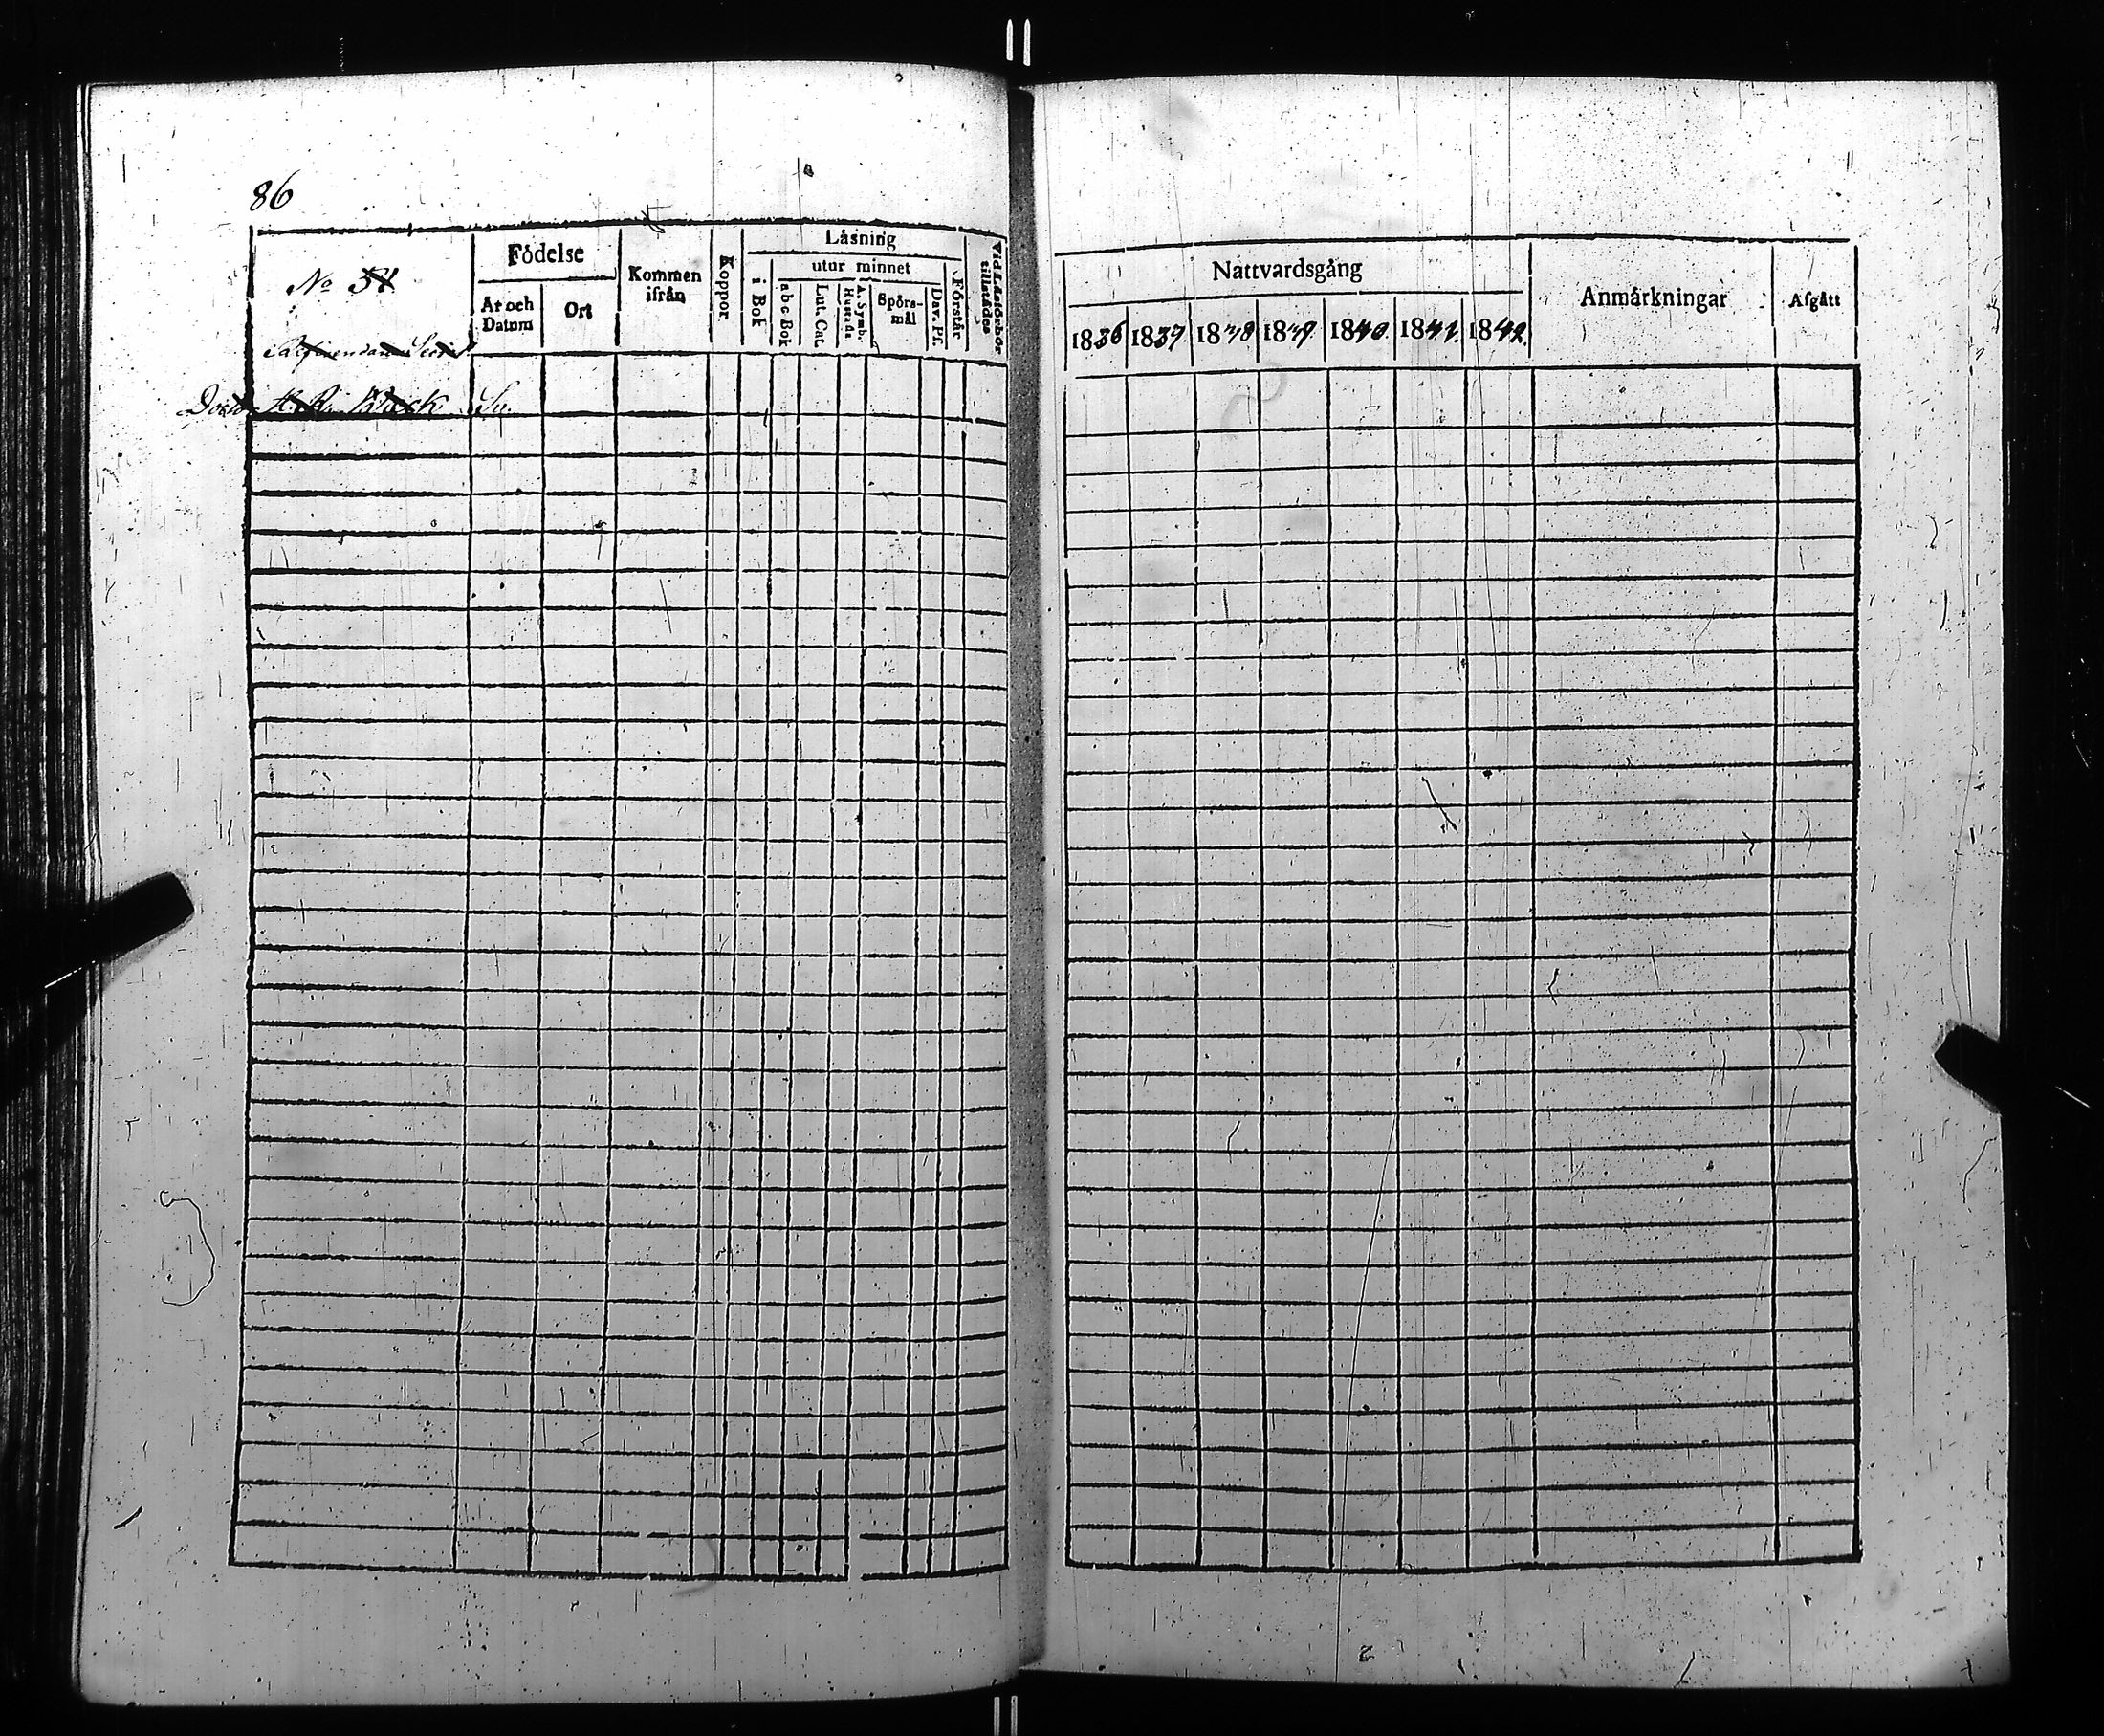 86
No 51
Födelse
År och Datum
Ort
Kommen ifrån
Koppor
Läsning
i Bok
utur minnet
abc Bok
Lut. Cat.
A. Symb. Hustafla
Spörsmål
Dav. Ps.
Förstår
Vid Läsförhör tillstädes
Doctor
Nattvardsgång
1836 1837 1838 1839 1840 1841 1842
Anmärkningar
Afgått